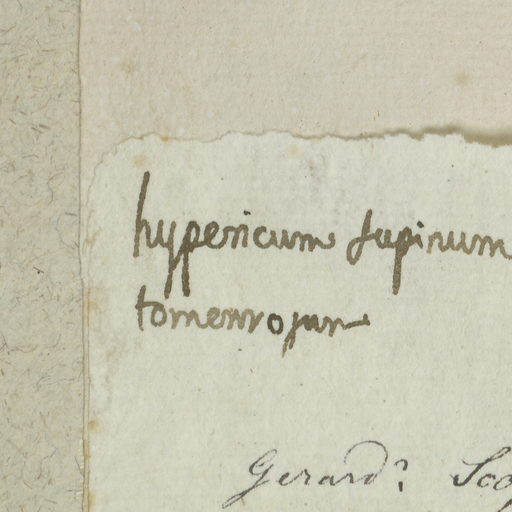 hypericum supinum
tomentosum
Gerard?